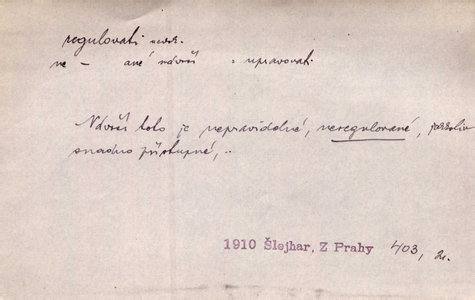 regulovati nedok.
ne – ané nádraží : upravovati
Nádraží toto je nepravidelné, neregulované, jakkoliv
snadno přístupné,..
1910 Šlejhar, Z Prahy 403,